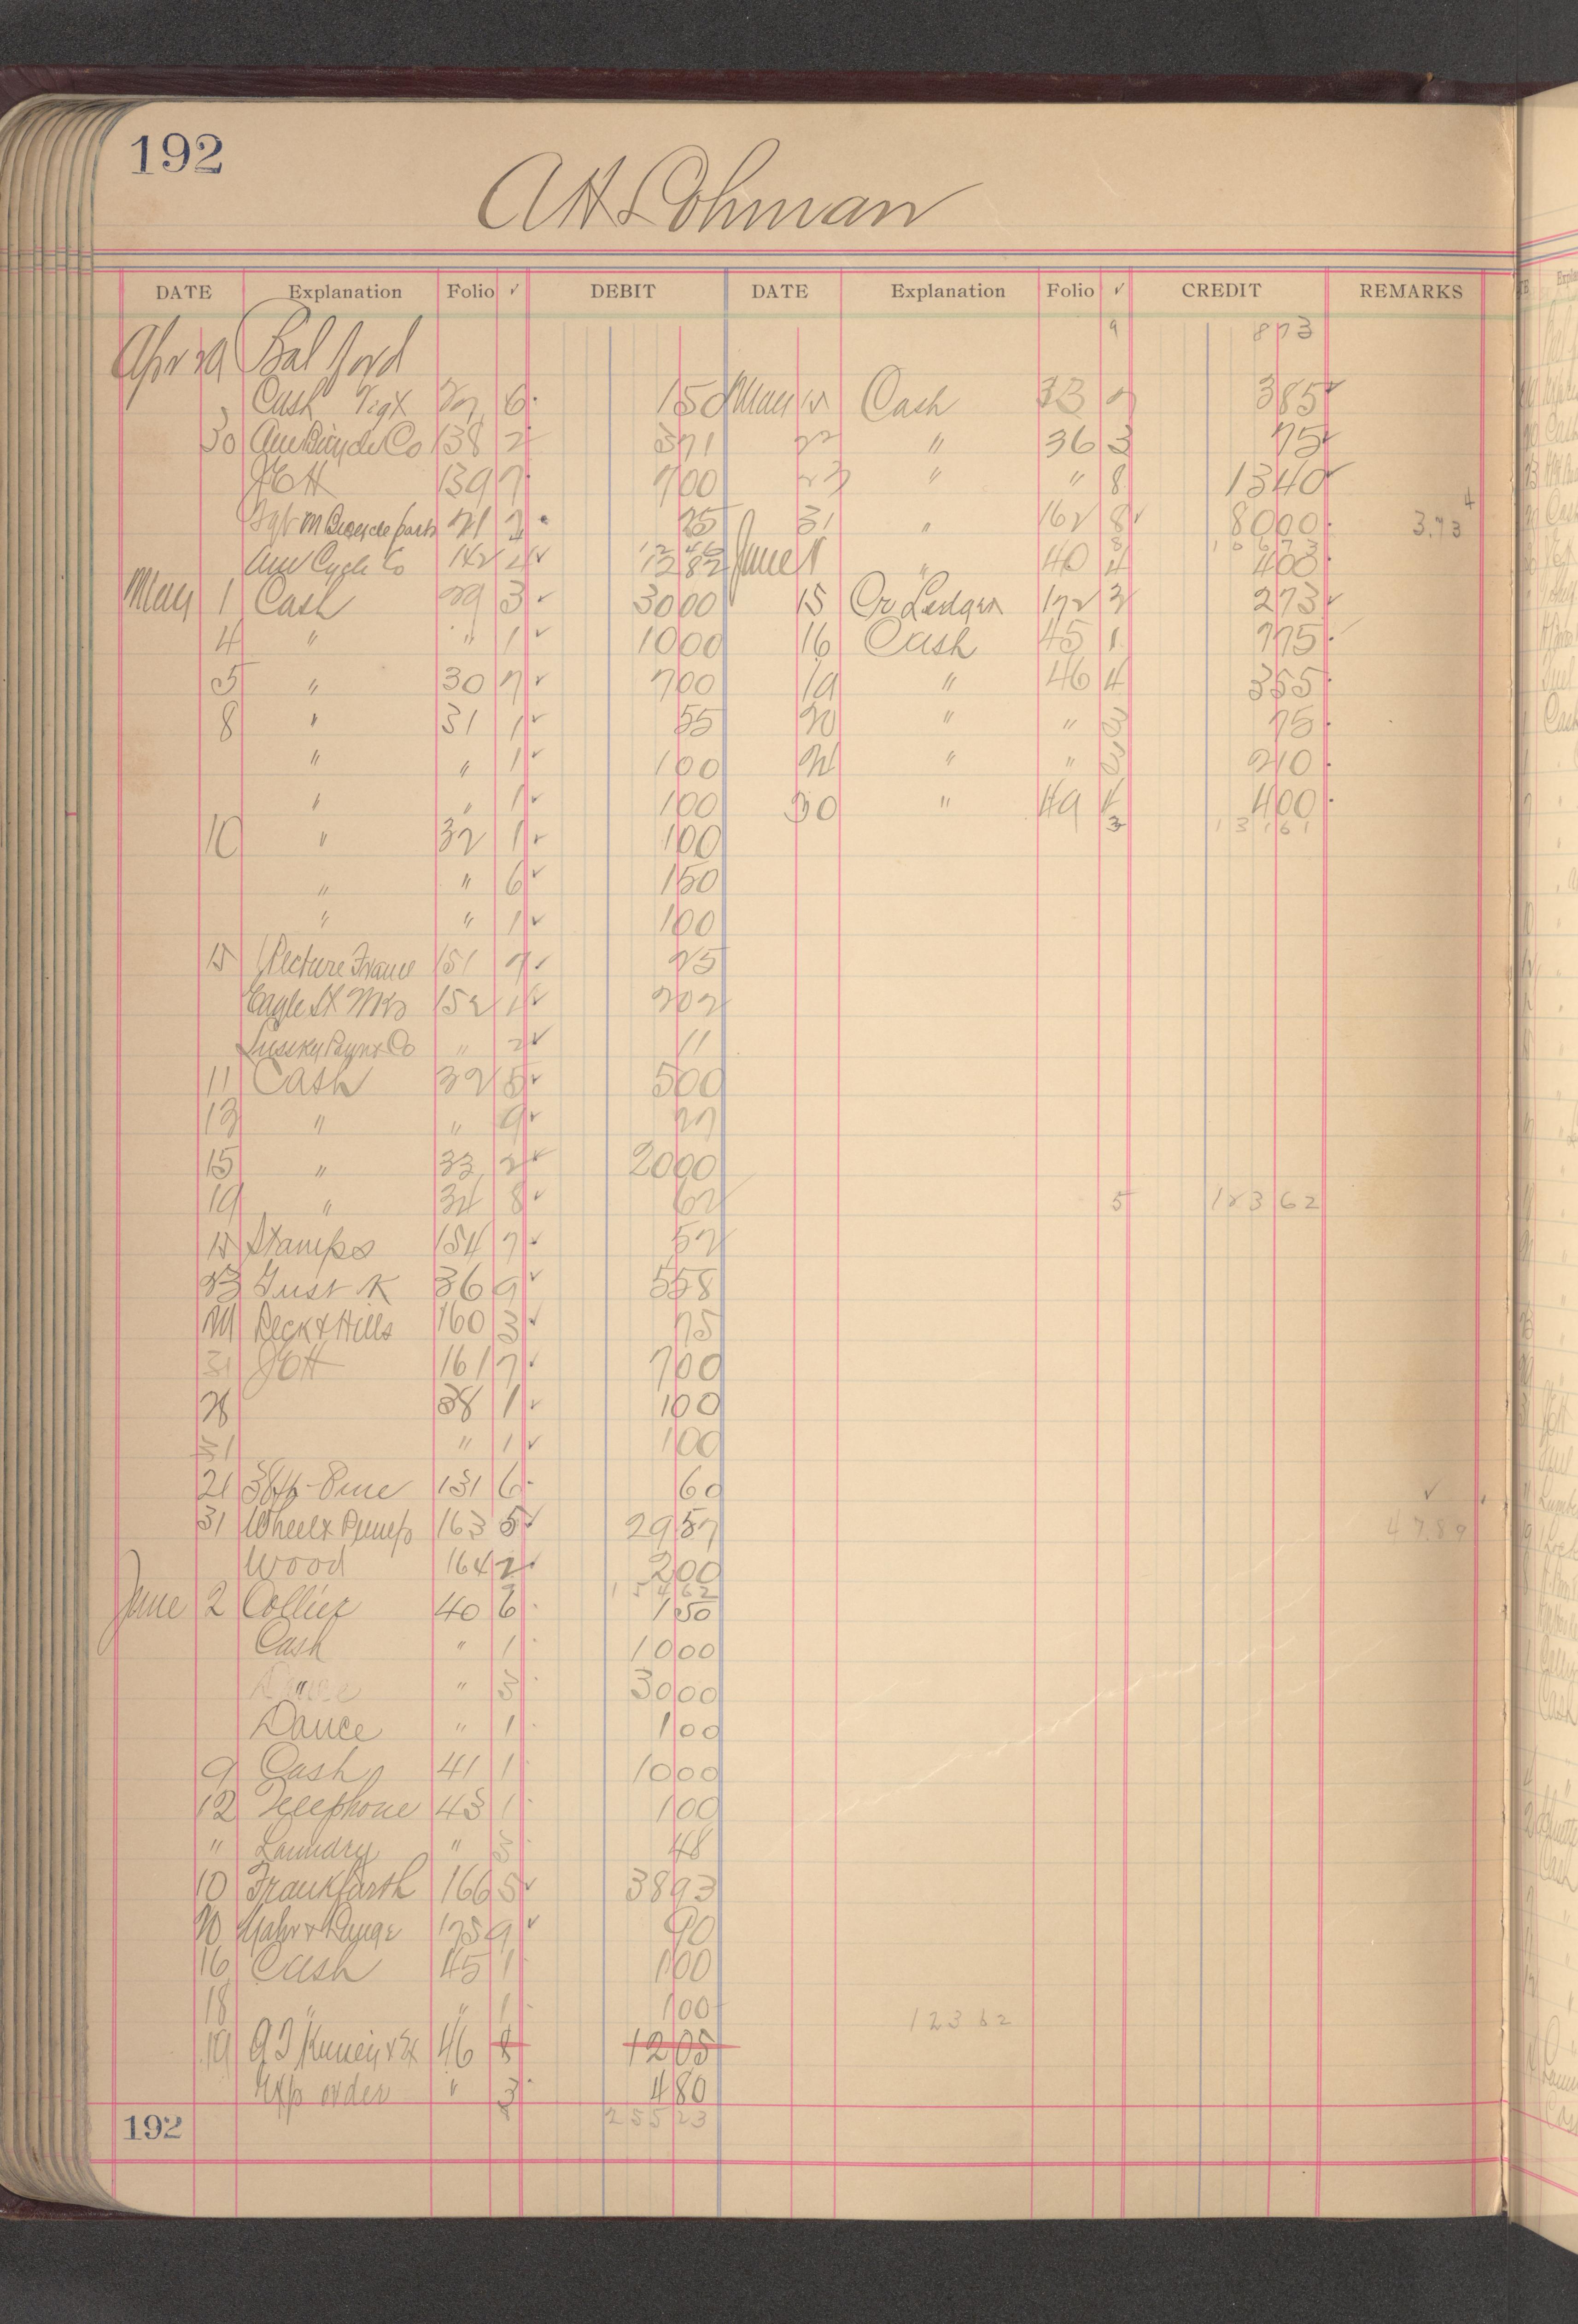 192
A H Lohman
DATE Explanation Folio ✓ DEBIT DATE Explanation Folio ✓ CREDIT REMARKS
9 873
Apr 29 Bal ford
Cash 6 150 May 12 Cash 33 385
30 Am Bicycle Co 138 2 371 22 " 36 3 75
J E H 139 7 700 23 " " 8 1340
25 31 " 162 8 8000 3.73
Am Cycle Co 142 1282 June 1 " 40 4 400
May 1 Cash 29 3 3000 15 Or Ledger 172 3 273
4 " " 1 1000 16 Cash 45 1 775
5 " 30 7 700 19 " 46 4 355
8 " 31 1 55 20 " " 3 75
" " 1 100 24 " " 3 210
" " 1 100 30 " 49 4 400
10 " 32 1 100 3 13161
" " 6 150
" " 1 100
15 Picture Frame 151 7 25
Eagle St 152 1 202
" 2 11
11 Cash 32 5 500
13 " " 9 27
15 " 33 2 2000
19 " 34 8 62 5 123 62
15 Stamps 154 7 52
23 Gust K 36 9 558
24 Peck & Hills 160 3 75
31 J E H 161 7 700
28 38 1 100
31 " 1 100
21 131 6 60
31 Wheel & Pump 163 5 2957 47.89
Wood 164 2 200
15462
June 2 Collier 40 6 150
Cash " 1 1000
" " 3 3000
Dance " 1 100
9 Cash 41 1 1000
12 Telephone 43 1 100
" Laundry " 3 48
10 Frankfurth 166 5 3893
20 175 9 90
16 Cash 45 1 100
18 " " 1 100
123 62
19 46 8 1205
Exp order " 3 480
25523
192